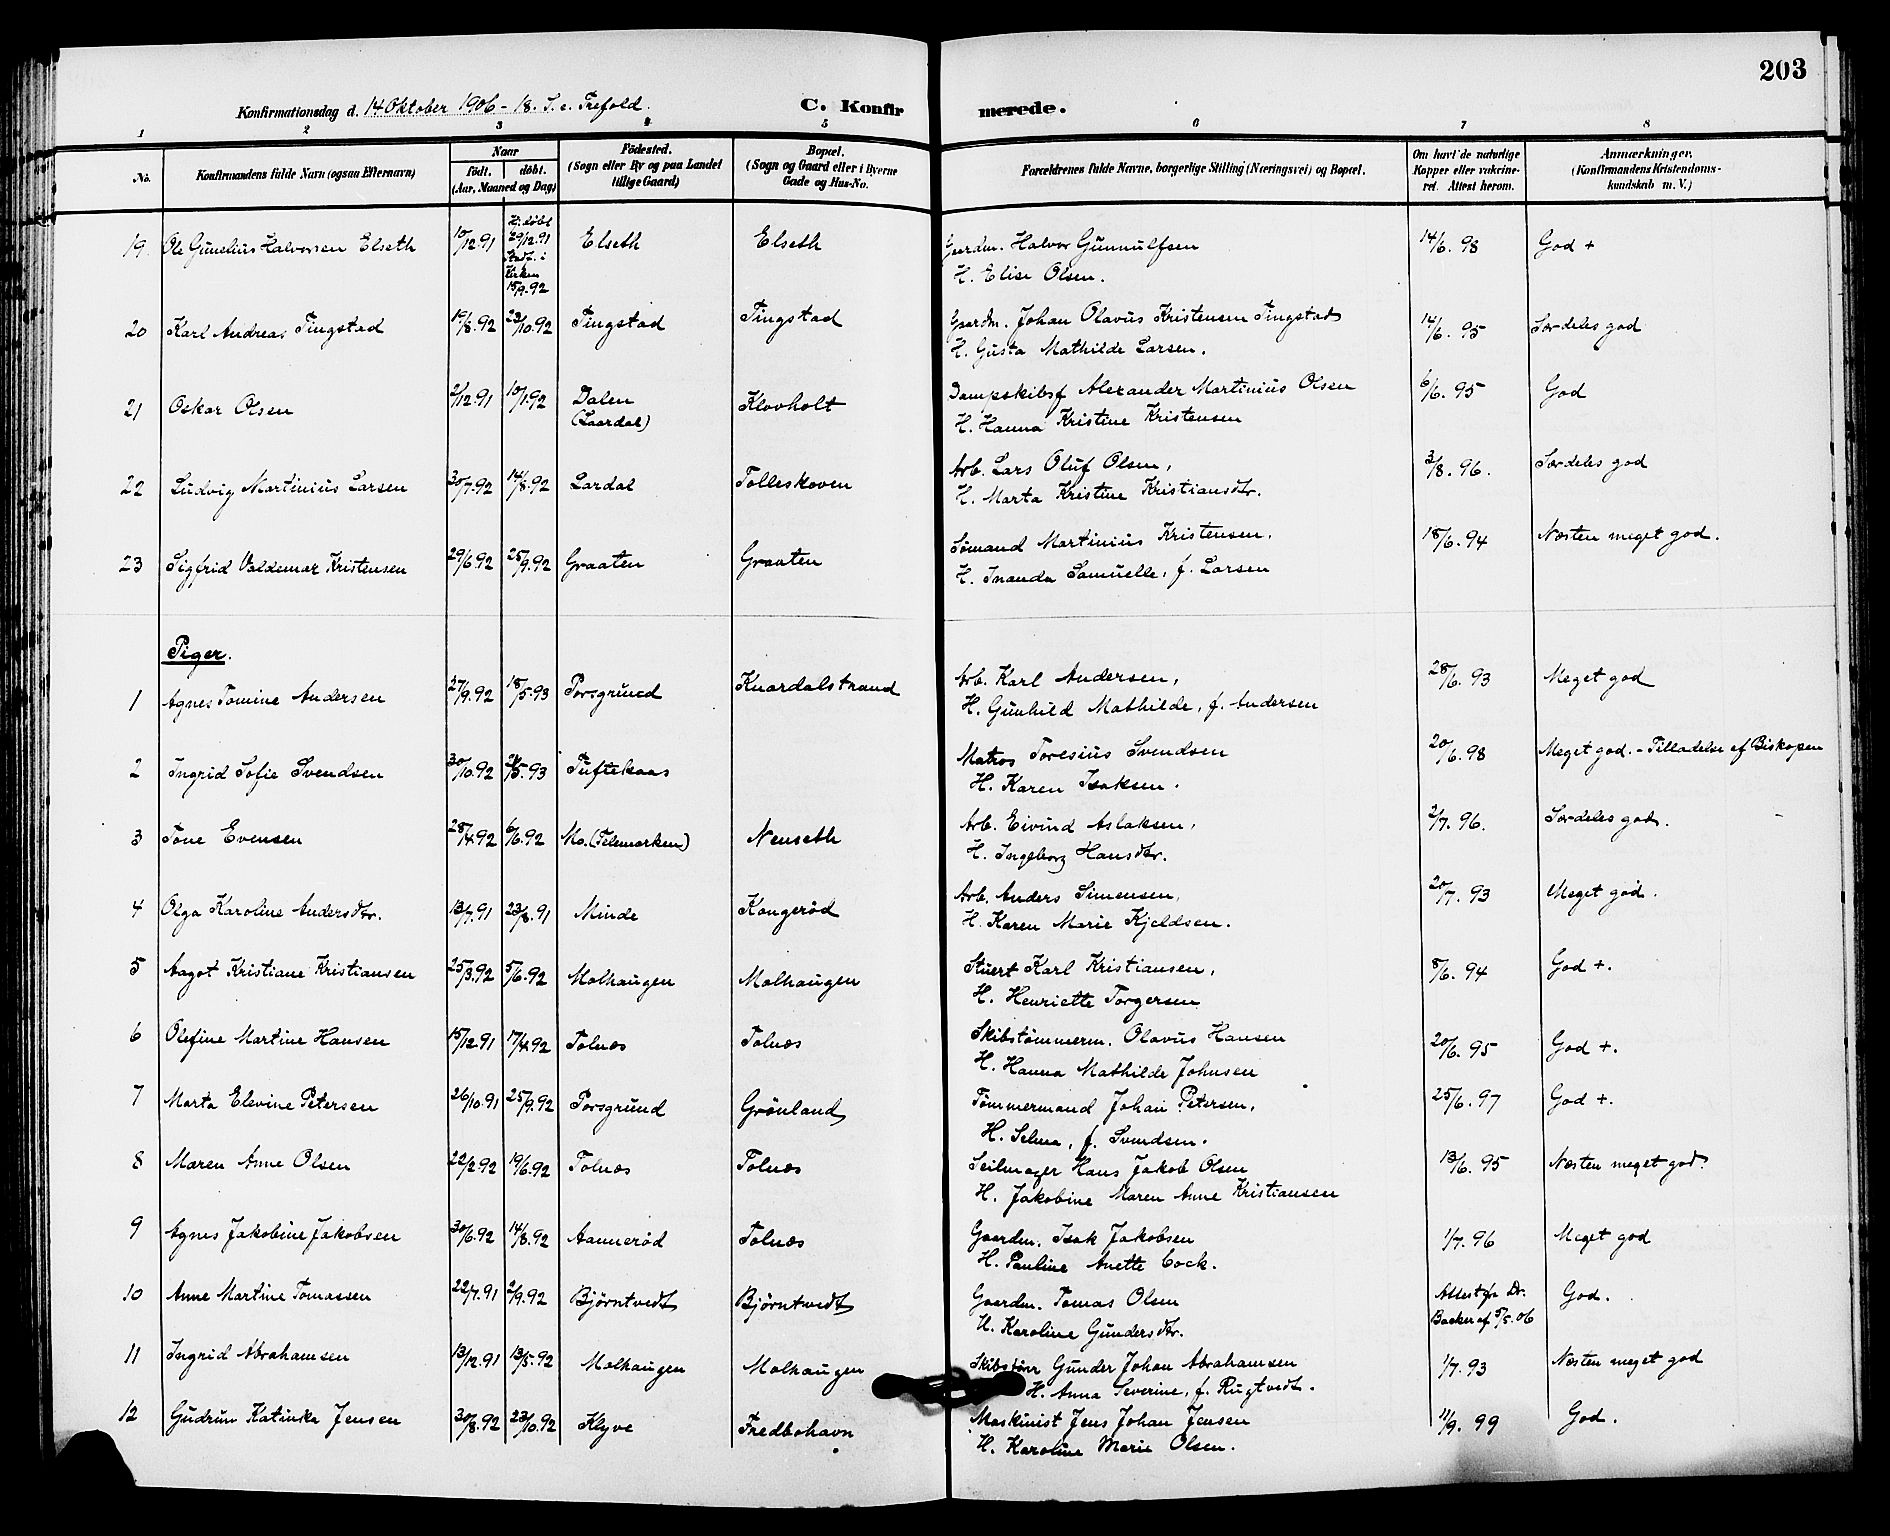 203
Konfirmationsdag d. 14 Oktober 1906 - 18. S. e. Trefold. C. Konfirmerede.
1 2 3 4 5 6 7 8
No. Konfirmandens fulde Navn (ogsaa Efternavn) Naar født. døbt. (Aar, Maaned og Dag) Fødested. (Sogn eller By og paa Landet tillige Gaard) Bopæl. (Sogn og Gaard eller i Byerne Gade og Hus-No. Forældrenes fulde Navne, borgerlige Stilling (Næringsvei) og Bopæl. Om havt de naturlige Kopper eller vakcineret. Attest herom. Anmærkninger. (Konfirmandens Kristendomskundskab m. V.)
19. Ole Gunelius Halvorsen Elseth 10/12.91 Hj. døbt 29/12.91 Stadf. i Kirken 15/9.92 Elseth Elseth Gaardm. Halvor Gunnulfsen 14/6.98 God +
H. Elise Olsen.
20 Karl Andreas Tingstad 19/8.92 23/10.92 Tingstad Tingstad Gaardm. Johan Olavus Kristensen Tingstad 14/6.95 Særdeles god
H. Gusta Mathilde Larsen.
21 Oskar Olsen 2/12.91 10/1.92 Dalen (Laardal) Klovholt Dampskibsf Alexander Martinius Olsen 6/6.95 God
H. Hanna Kristine Kristensen
22 Ludvig Martinius Larsen 30/7.92 14/8.92 Lardal Tolleskoven Arb. Lars Oluf Olsen, 3/8.96. Særdeles god
H. Marta Kristine Kristiansdtr.
23 Sigfrid Valdemar Kristensen 29/6.92 25/9.92 Graaten Graaten Sømand Martinius Kristensen. 18/6.94 Næsten meget god.
H. Inanda Samuelle, f. Larsen
Piger.
1 Agnes Tomine Andersen 27/9.92 18/5.93 Porsgrund Knardalstrand Arb. Karl Andersen, 28/6.93 Meget god
H. Gunhild Mathilde, f. Andersen
2 Ingrid Sofie Svendsen 30/10.92 21/5.93 Tuftekaas Matros Toresius Svendsen 20/6.98 Meget god. - Tilladelse af Biskopen
H. Karen Isaksen.
3 Tone Evensen 28/4.92 6/6.92 Mo. (Telemarken) Nenseth Arb. Eivind Aslaksen, 2/7.96. Særdeles god.
H. Ingeborg Hansdtr.
4 Olga Karoline Andersdtr. 13/7.91 23/8.91 Minde Kongerød Arb. Anders Simensen, 20/7.93 Meget god.
H. Karen Marie Kjeldsen.
5 Aagot Kristiane Kristiansen 25/3.92 5/6.92 Molhaugen Molhaugen Stuert Karl Kristiansen, 8/6.94 God +.
H. Henriette Torgersen
6 Olefine Martine Hansen 15/12.91 17/4.92 Tolnæs Tolnæs Skibstømmerm. Olavus Hansen 20/6.95 God +.
H. Hanna Mathilde Johnsen
7 Marta Elevine Petersen 26/10.91 25/9.92 Porsgrund Grønland Tømmermand Johan Petersen, 25/6.97 God +.
H. Selma, f. Svendsen.
8 Maren Anne Olsen 22/2.92 19/6.92 Tolnæs Tolnæs Seilmager Hans Jakob Olsen 13/6.95 Næsten meget god.
H. Jakobine Maren Anne Kristiansen
9 Agnes Jakobine Jakobsen 30/6.92 14/8.92 Aannerød Tolnæs Gaardm. Isak Jakobsen 1/7.96 Meget god
H. Pauline Anette Cock.
10 Anne Martine Tomassen 22/7.91 2/9.92 Bjørntvedt Bjørntvedt Gaardm. Tomas Olsen Attest fra Dr. Backer af 5/5.06 God.
H. Karoline Gundersdtr.
11 Ingrid Abrahamsen 13/12.91 13/5.92 Molhaugen Molhaugen Skibstømr Gunder Johan Abrahamsen 1/7.93 Næsten meget god
H. Anna Severine, f. Rugtvedt.
12 Gudrun Katinka Jensen 30/8.92 23/10.92 Klyve Fredbohavn Maskinist Jens Johan Jensen 11/9.99 God.
H. Karoline Marie Olsen.